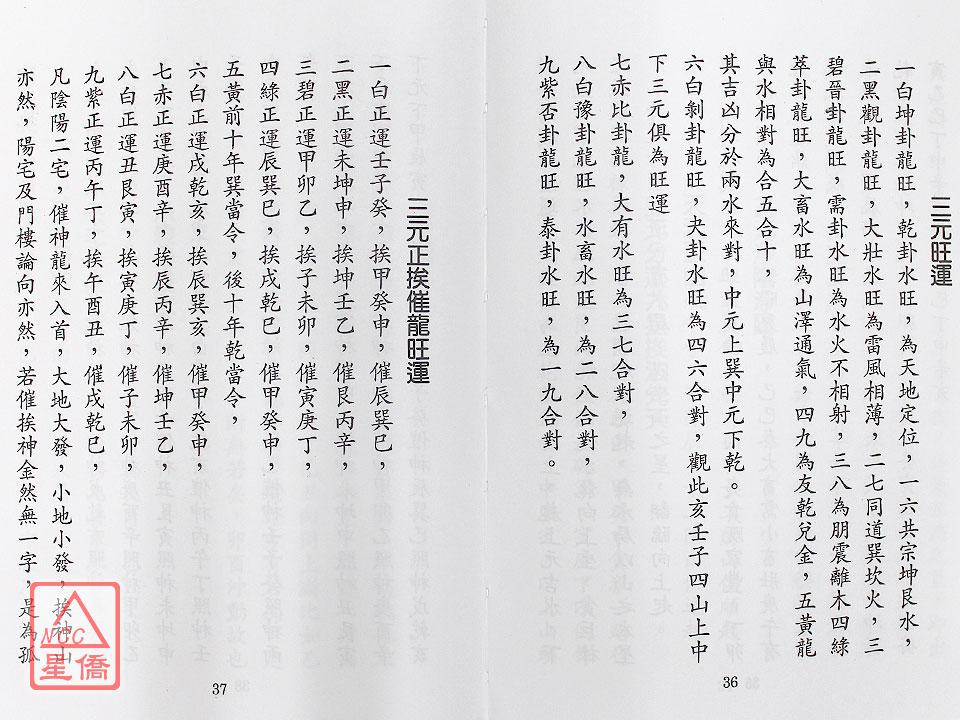 三元旺運
一白坤卦龍旺，乾卦水旺，為天地定位，一六共宗坤艮水，
二黑觀卦龍旺，大壯水旺為雷風相薄，二七同道巽坎火，三
碧晉卦龍旺，需卦水旺為水火不相射，三八為朋震離木四綠
萃卦龍旺，大畜水旺為山澤通氣，四九為友乾兌金，五黃龍
與水相對為合五合十，
其吉凶分於兩水來對，中元上巽中元下乾。
六白剝卦龍旺，夬卦水旺為四六合對，觀此亥壬子四山上中
下三元俱為旺運
七赤比卦龍旺，大有水旺為三七合對，
八白豫卦龍旺，水畜水旺，為二八合對，
九紫否卦龍旺，泰卦水旺，為一九合對。
36
三元正挨催龍旺運
一白正運壬子癸，挨甲癸申，催辰巽巳，
二黑正運未坤申，挨坤壬乙，催艮丙辛，
三碧正運甲卯乙，挨子未卯，催寅庚丁，
四綠正運辰巽巳，挨戌乾巳，催甲癸申，
五黃前十年巽當令，後十年乾當令，
六白正運戌乾亥，挨辰巽亥，催甲癸申，
七赤正運庚酉辛，挨辰丙辛，催坤壬乙，
八白正運丑艮寅，挨寅庚丁，催子未卯，
九紫正運丙午丁，挨午酉丑，催戌乾巳，
凡陰陽二宅，催神龍來入首，大地大發，小地小發，挨神山
亦然，陽宅及門樓論向亦然，若催挨神金然無一字，是為孤
37
NCC
星僑